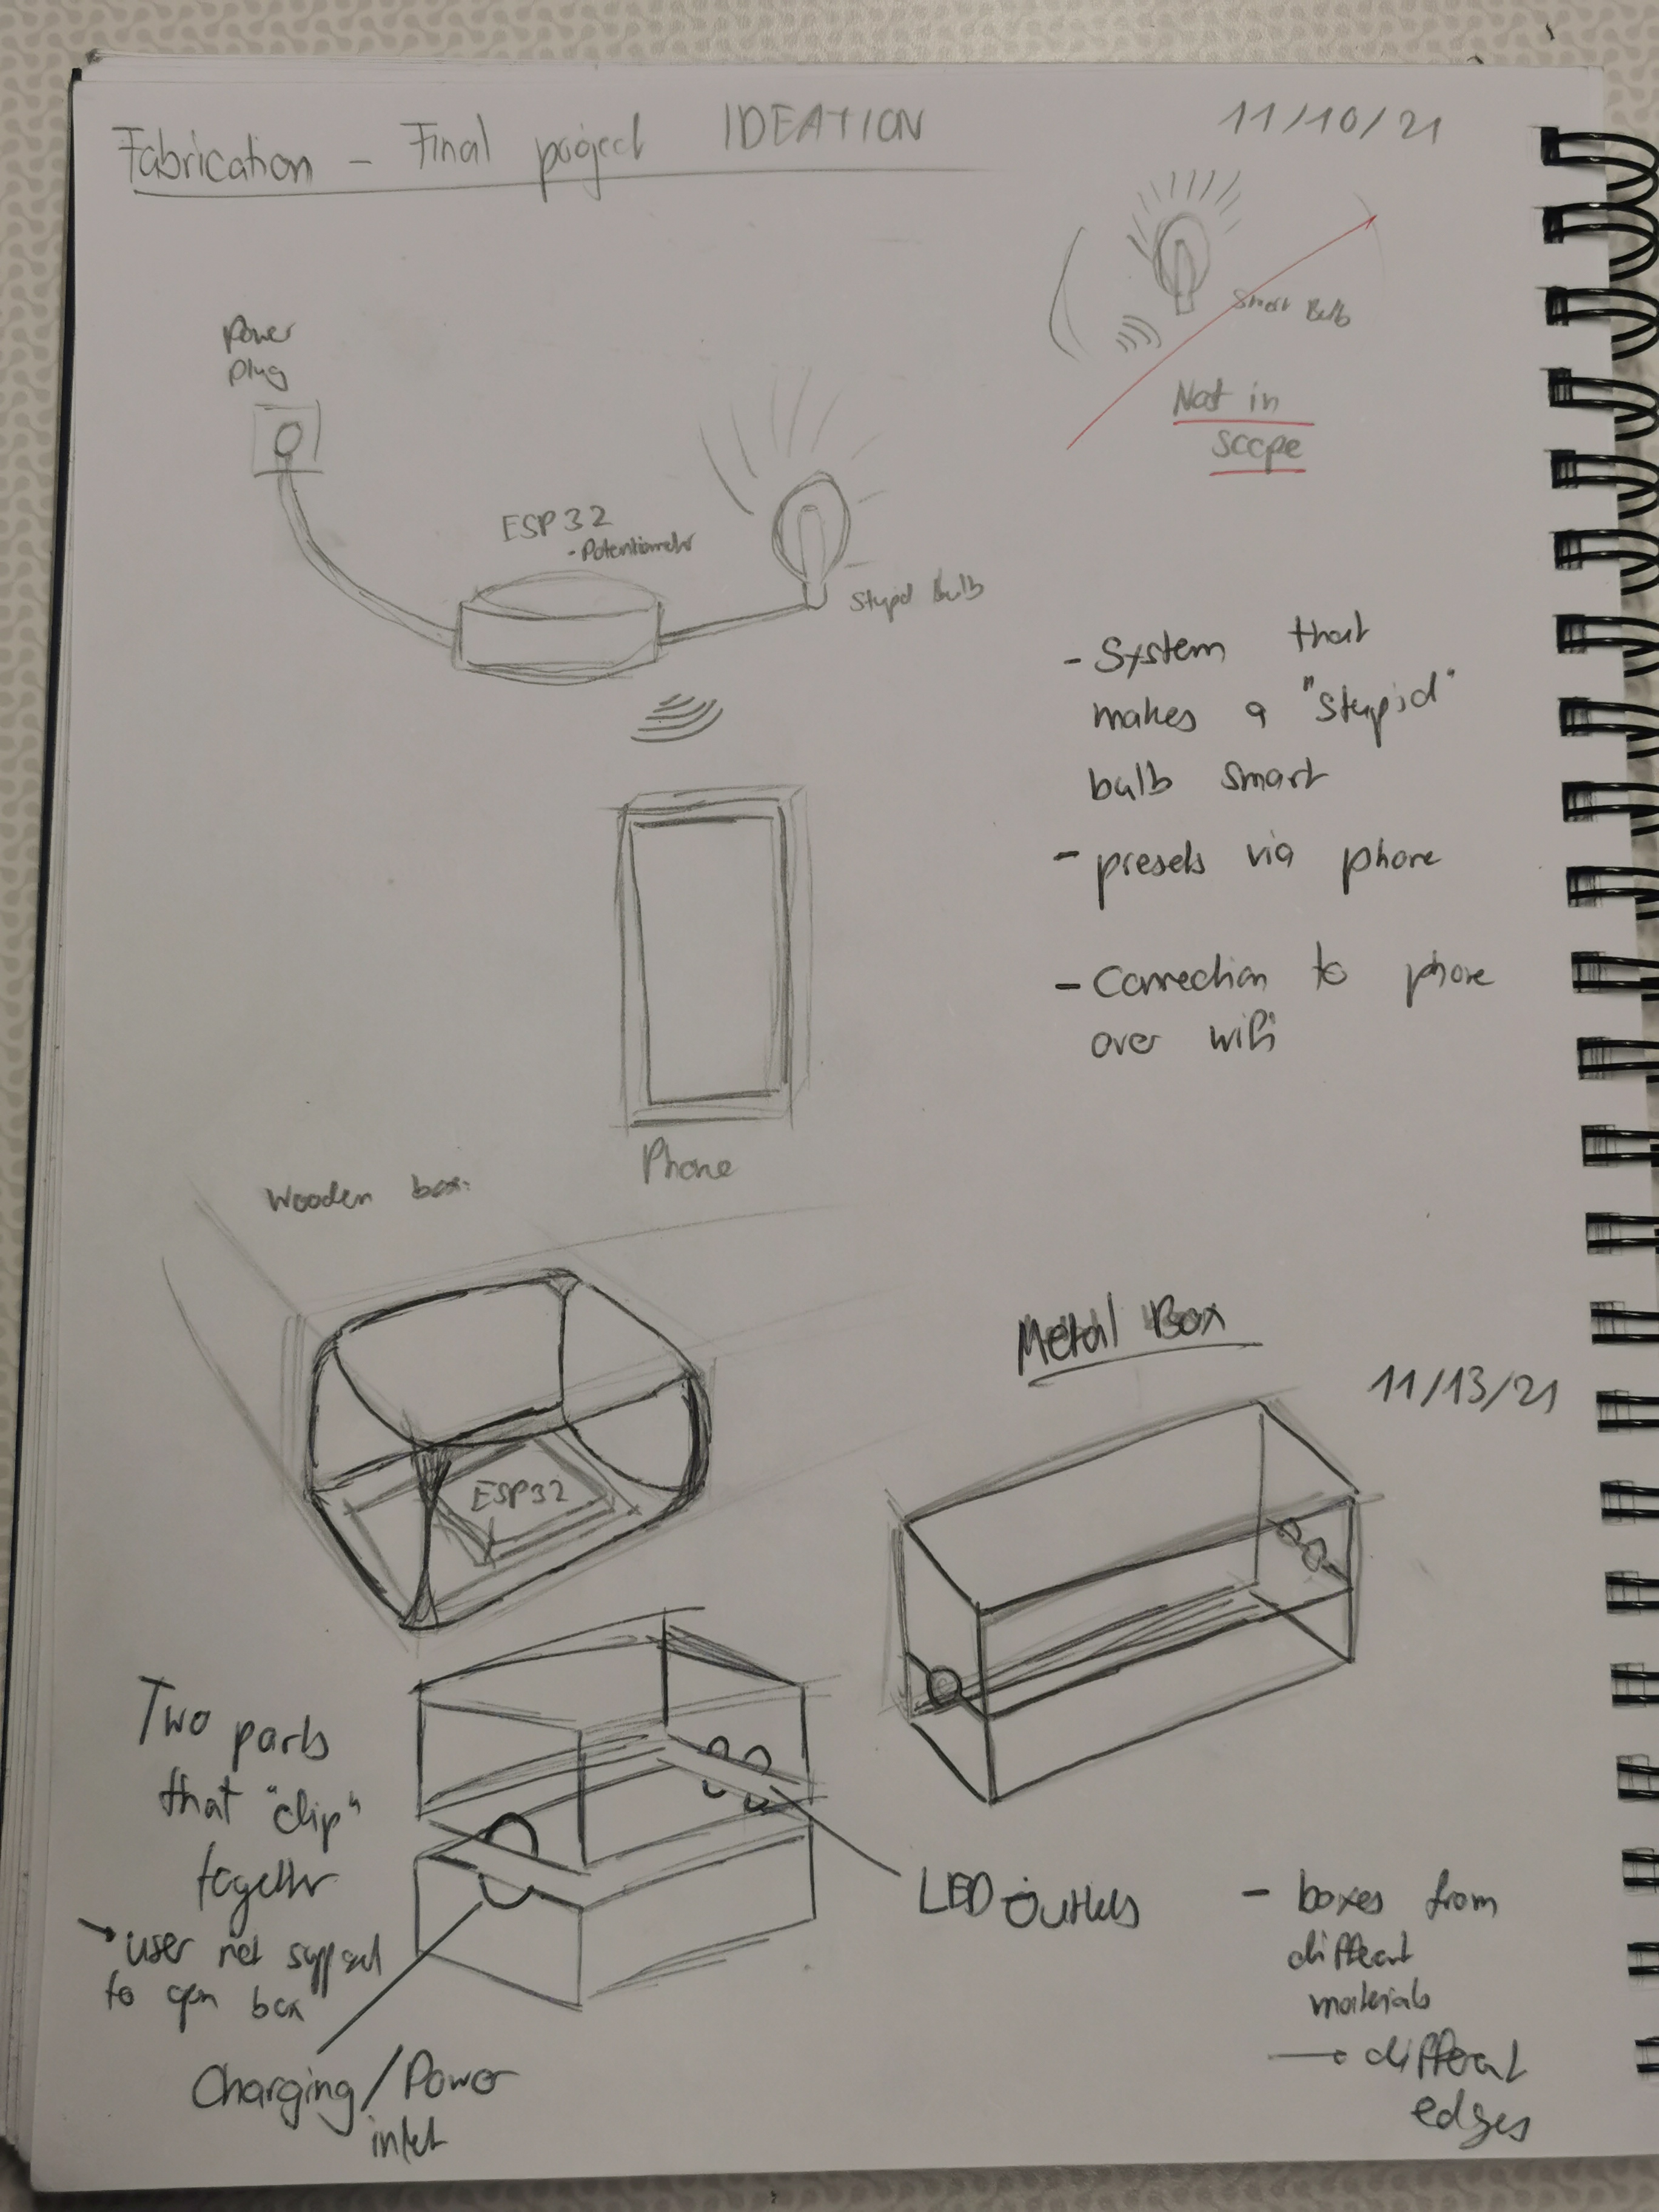 Fabrication - Final project IDEATION
11/10/21
Smart Bulb
Not in
scope
Power
plug
ESP32
- Potentiometer
Stupid Bulb
- System that
makes a "stupid"
bulb smart
- presets via phone
- Connection to phone
over wifi
Phone
Wooden box:
ESP32
Metal Box
11/13/21
Two parts
that "clip"
together
→ user not supposed
to open box
Charging/Power
inlet
LED Outlets
- boxes from
different
materials
→ different
edges